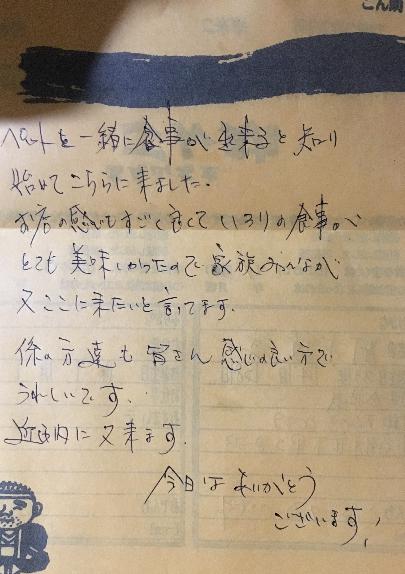 ペットも一緒に食事が出来ると知り
始めてこちらに来ました。
お店の感じもすごく良くていろりの食事が
とても美味しかったので家族みんなが
又ここに来たいと言ってます。
係の方達も皆さん感じの良い方で
うれしいです。
近内に又来ます。
今日はありがとう
ございます!